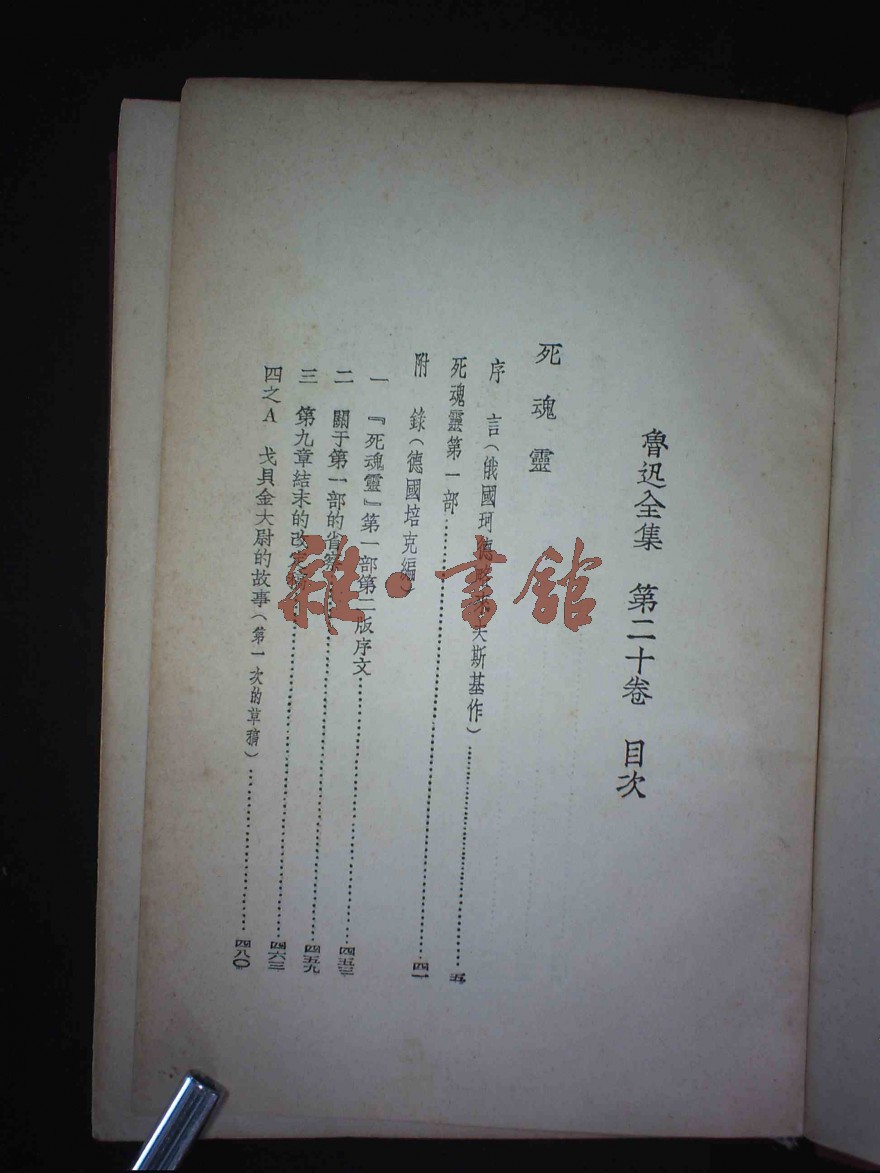 魯迅全集 第二十卷 目次
死魂靈
序 言(俄國珂德 夫斯基作)……五
死魂靈第一部……四一
附 錄(德國培克編)
一 『死魂靈』第一部第二版序文……四五三
二 關于第一部的省察……四五九
三 第九章結末的改 ……四六三
四之A 戈貝金大尉的故事(第一次的草稿)……四八〇
雜·書館